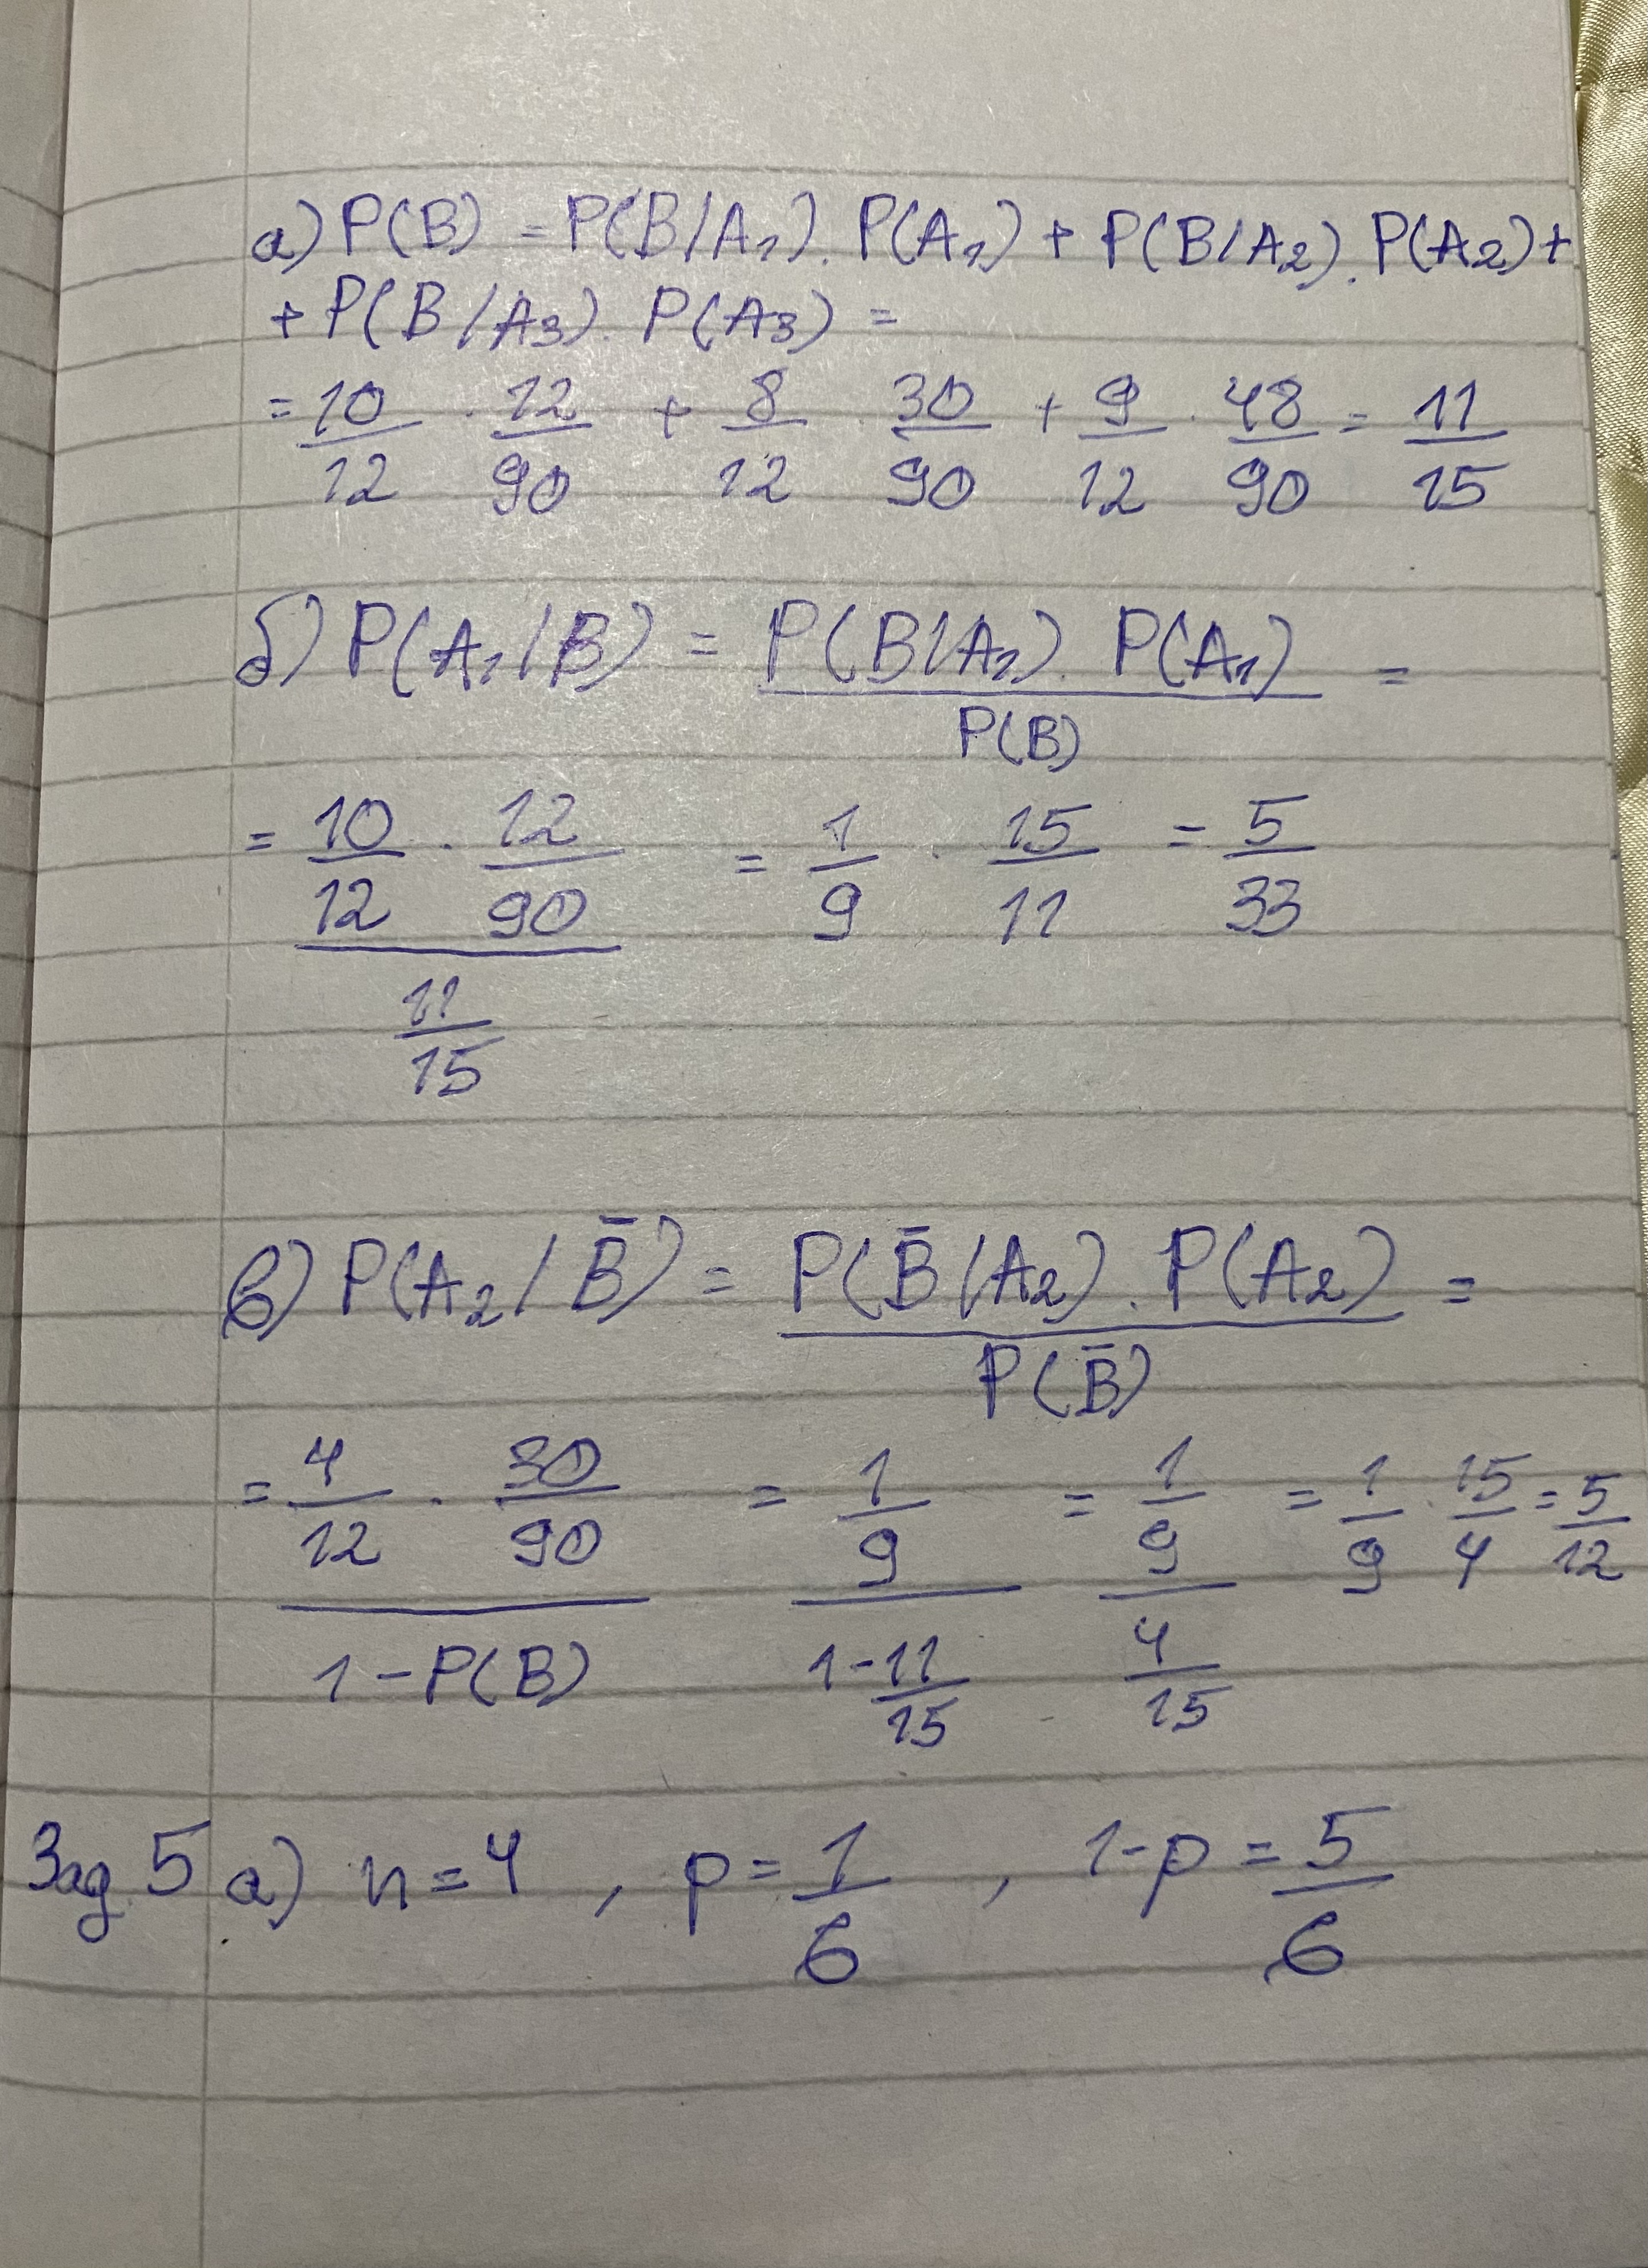 а) P(B) = P(B/A₁). P(A₁) + P(B/A₂). P(A₂) +
+ P(B/A₃). P(A₃) =
= 10/12 . 12/90 + 8/12 . 30/90 + 9/12 . 48/90 = 11/15
б) P(A₁/B) = P(B/A₁). P(A₁) / P(B) =
= 10/12 . 12/90 / 11/15 = 1/9 . 15/11 = 5/33
в) P(A₂/B̄) = P(B̄/A₂). P(A₂) / P(B̄) =
= 4/12 . 30/90 / 1-P(B) = 1/9 / 1-11/15 = 1/9 / 4/15 = 1/9 . 15/4 = 5/12
Зад. 5 а) n=4, p=1/6, 1-p=5/6